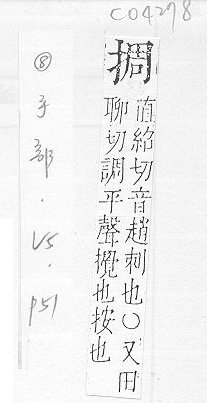 C04278
⑧手部·V5·P51
搁
直紹切音趙刺也〇又田
聊切調平聲攪也按也